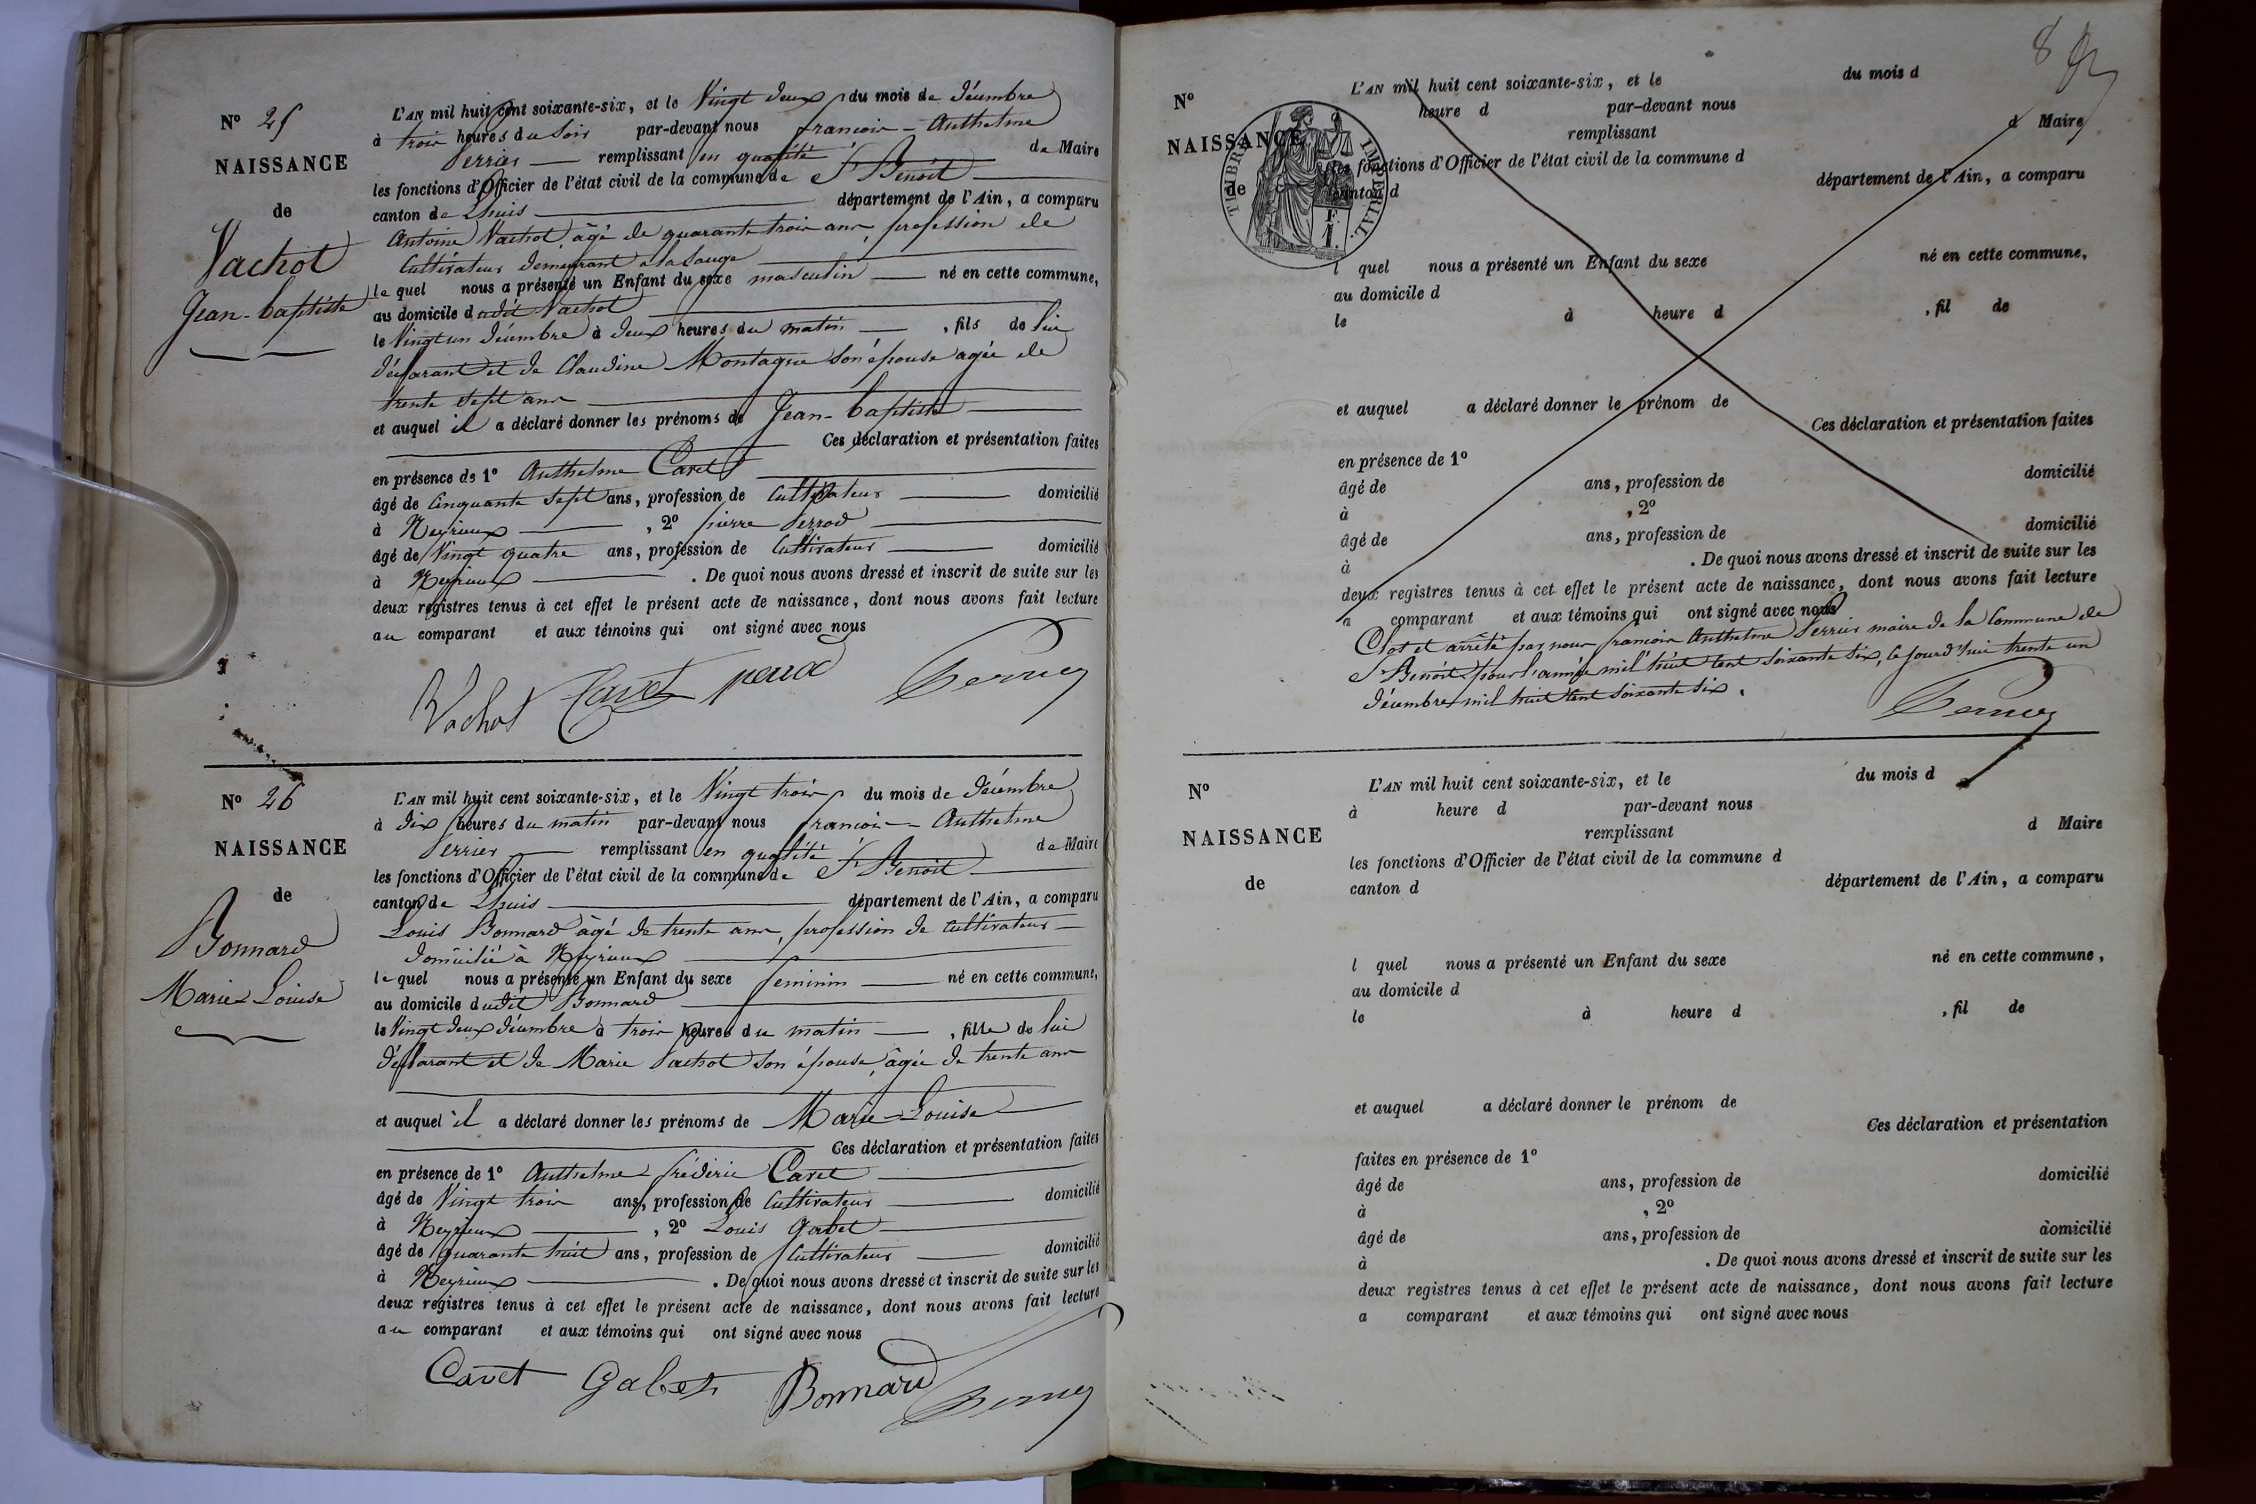 N° 25
NAISSANCE
de
Vachot
Jean-baptiste
L'AN mil huit cent soixante-six, et le Vingt deux du mois de décembre
à trois heures du Soir par-devant nous françois-Anthelme
Perrier remplissant en qualité de Maire
les fonctions d'Officier de l'état civil de la commune de St Benoît
canton de Lhuis département de l'Ain, a comparu
Antoine Vachot, âgé de quarante trois ans, profession de
Cultivateur demeurant a la Sauge
le quel nous a présenté un Enfant du sexe masculin né en cette commune,
au domicile dudit Vachot
le Vingt un décembre à deux heures du matin, fils de lui
déclarant et de Claudine Montagne son épouse agée de
trente sept ans
et auquel il a déclaré donner les prénoms de Jean-baptiste
Ces déclaration et présentation faites
en présence de 1° Anthelme Cavet
âgé de Cinquante sept ans, profession de Cultivateur domicilié
à Neyrieux, 2° pierre
âgé de Vingt quatre ans, profession de Cultivateur domicilié
à Neyrieux. De quoi nous avons dressé et inscrit de suite sur les
deux registres tenus à cet effet le présent acte de naissance, dont nous avons fait lecture
au comparant et aux témoins qui ont signé avec nous
Vachot Cavet Perrier
N° 26
NAISSANCE
de
Bonnard
Marie Louise
L'AN mil huit cent soixante-six, et le Vingt trois du mois de décembre
à dix heures du matin par-devant nous françois-Anthelme
Perrier remplissant en qualité de Maire
les fonctions d'Officier de l'état civil de la commune de St Benoît
canton de Lhuis département de l'Ain, a comparu
Louis Bonnard âgé de trente ans, profession de cultivateur
domicilié à Neyrieux
le quel nous a présenté un Enfant du sexe feminin né en cette commune,
au domicile dudit Bonnard
le Vingt deux décembre à trois heures du matin, fille de lui
déclarant et de Marie Vachot son épouse, âgée de trente ans
et auquel il a déclaré donner les prénoms de Marie-Louise
Ces déclaration et présentation faites
en présence de 1° Anthelme frédéric Cavet
âgé de Vingt trois ans, profession de Cultivateur domicilié
à Neyrieux, 2° Louis Gabet
âgé de quarante huit ans, profession de Cultivateur domicilié
à Neyrieux. De quoi nous avons dressé et inscrit de suite sur les
deux registres tenus à cet effet le présent acte de naissance, dont nous avons fait lecture
au comparant et aux témoins qui ont signé avec nous
Cavet Gabet Bonnard Perrier
8
N°
NAISSANCE
de
TIMBRE IMPERIAL.
L'AN mil huit cent soixante-six, et le du mois d
heure d par-devant nous
remplissant d Maire
les fonctions d'Officier de l'état civil de la commune d
canton d département de l'Ain, a comparu
l quel nous a présenté un Enfant du sexe né en cette commune,
au domicile d
le à heure d , fil de
et auquel a déclaré donner le prénom de
Ces déclaration et présentation faites
en présence de 1°
âgé de ans, profession de domicilié
à , 2°
âgé de ans, profession de domicilié
à . De quoi nous avons dressé et inscrit de suite sur les
deux registres tenus à cet effet le présent acte de naissance, dont nous avons fait lecture
a comparant et aux témoins qui ont signé avec nous
Clos et arrêté par nous françois Anthelme Perrier maire de la Commune de
St Benoît pour l'année mil huit cent soixante six, ce jourd'hui trente un
décembre mil huit cent soixante six.
Perrier
N°
NAISSANCE
de
L'AN mil huit cent soixante-six, et le du mois d
à heure d par-devant nous
remplissant d Maire
les fonctions d'Officier de l'état civil de la commune d
canton d département de l'Ain, a comparu
l quel nous a présenté un Enfant du sexe né en cette commune,
au domicile d
le à heure d , fil de
et auquel a déclaré donner le prénom de
Ces déclaration et présentation
faites en présence de 1°
âgé de ans, profession de domicilié
à , 2°
âgé de ans, profession de domicilié
à . De quoi nous avons dressé et inscrit de suite sur les
deux registres tenus à cet effet le présent acte de naissance, dont nous avons fait lecture
a comparant et aux témoins qui ont signé avec nous